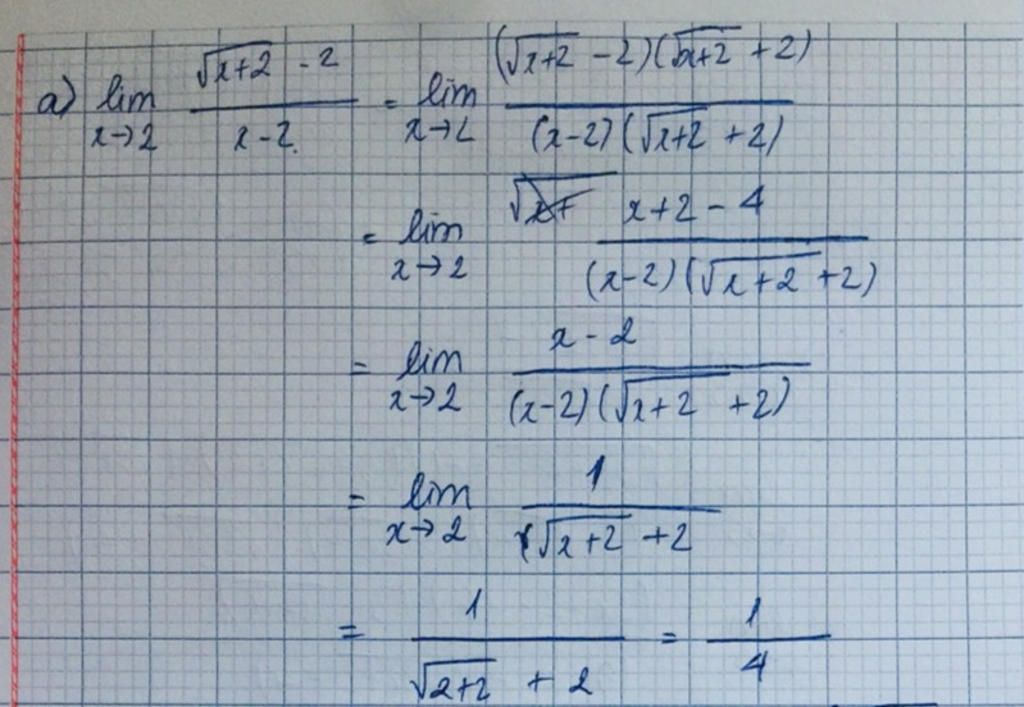 a) lim x→2 (√(x+2) - 2)/(x-2) = lim x→2 ((√(x+2) - 2)(√(x+2) + 2))/((x-2)(√(x+2) + 2))
= lim x→2 (x+2-4)/((x-2)(√(x+2) + 2))
= lim x→2 (x-2)/((x-2)(√(x+2) + 2))
= lim x→2 1/(√(x+2) + 2)
= 1/(√(2+2) + 2) = 1/4